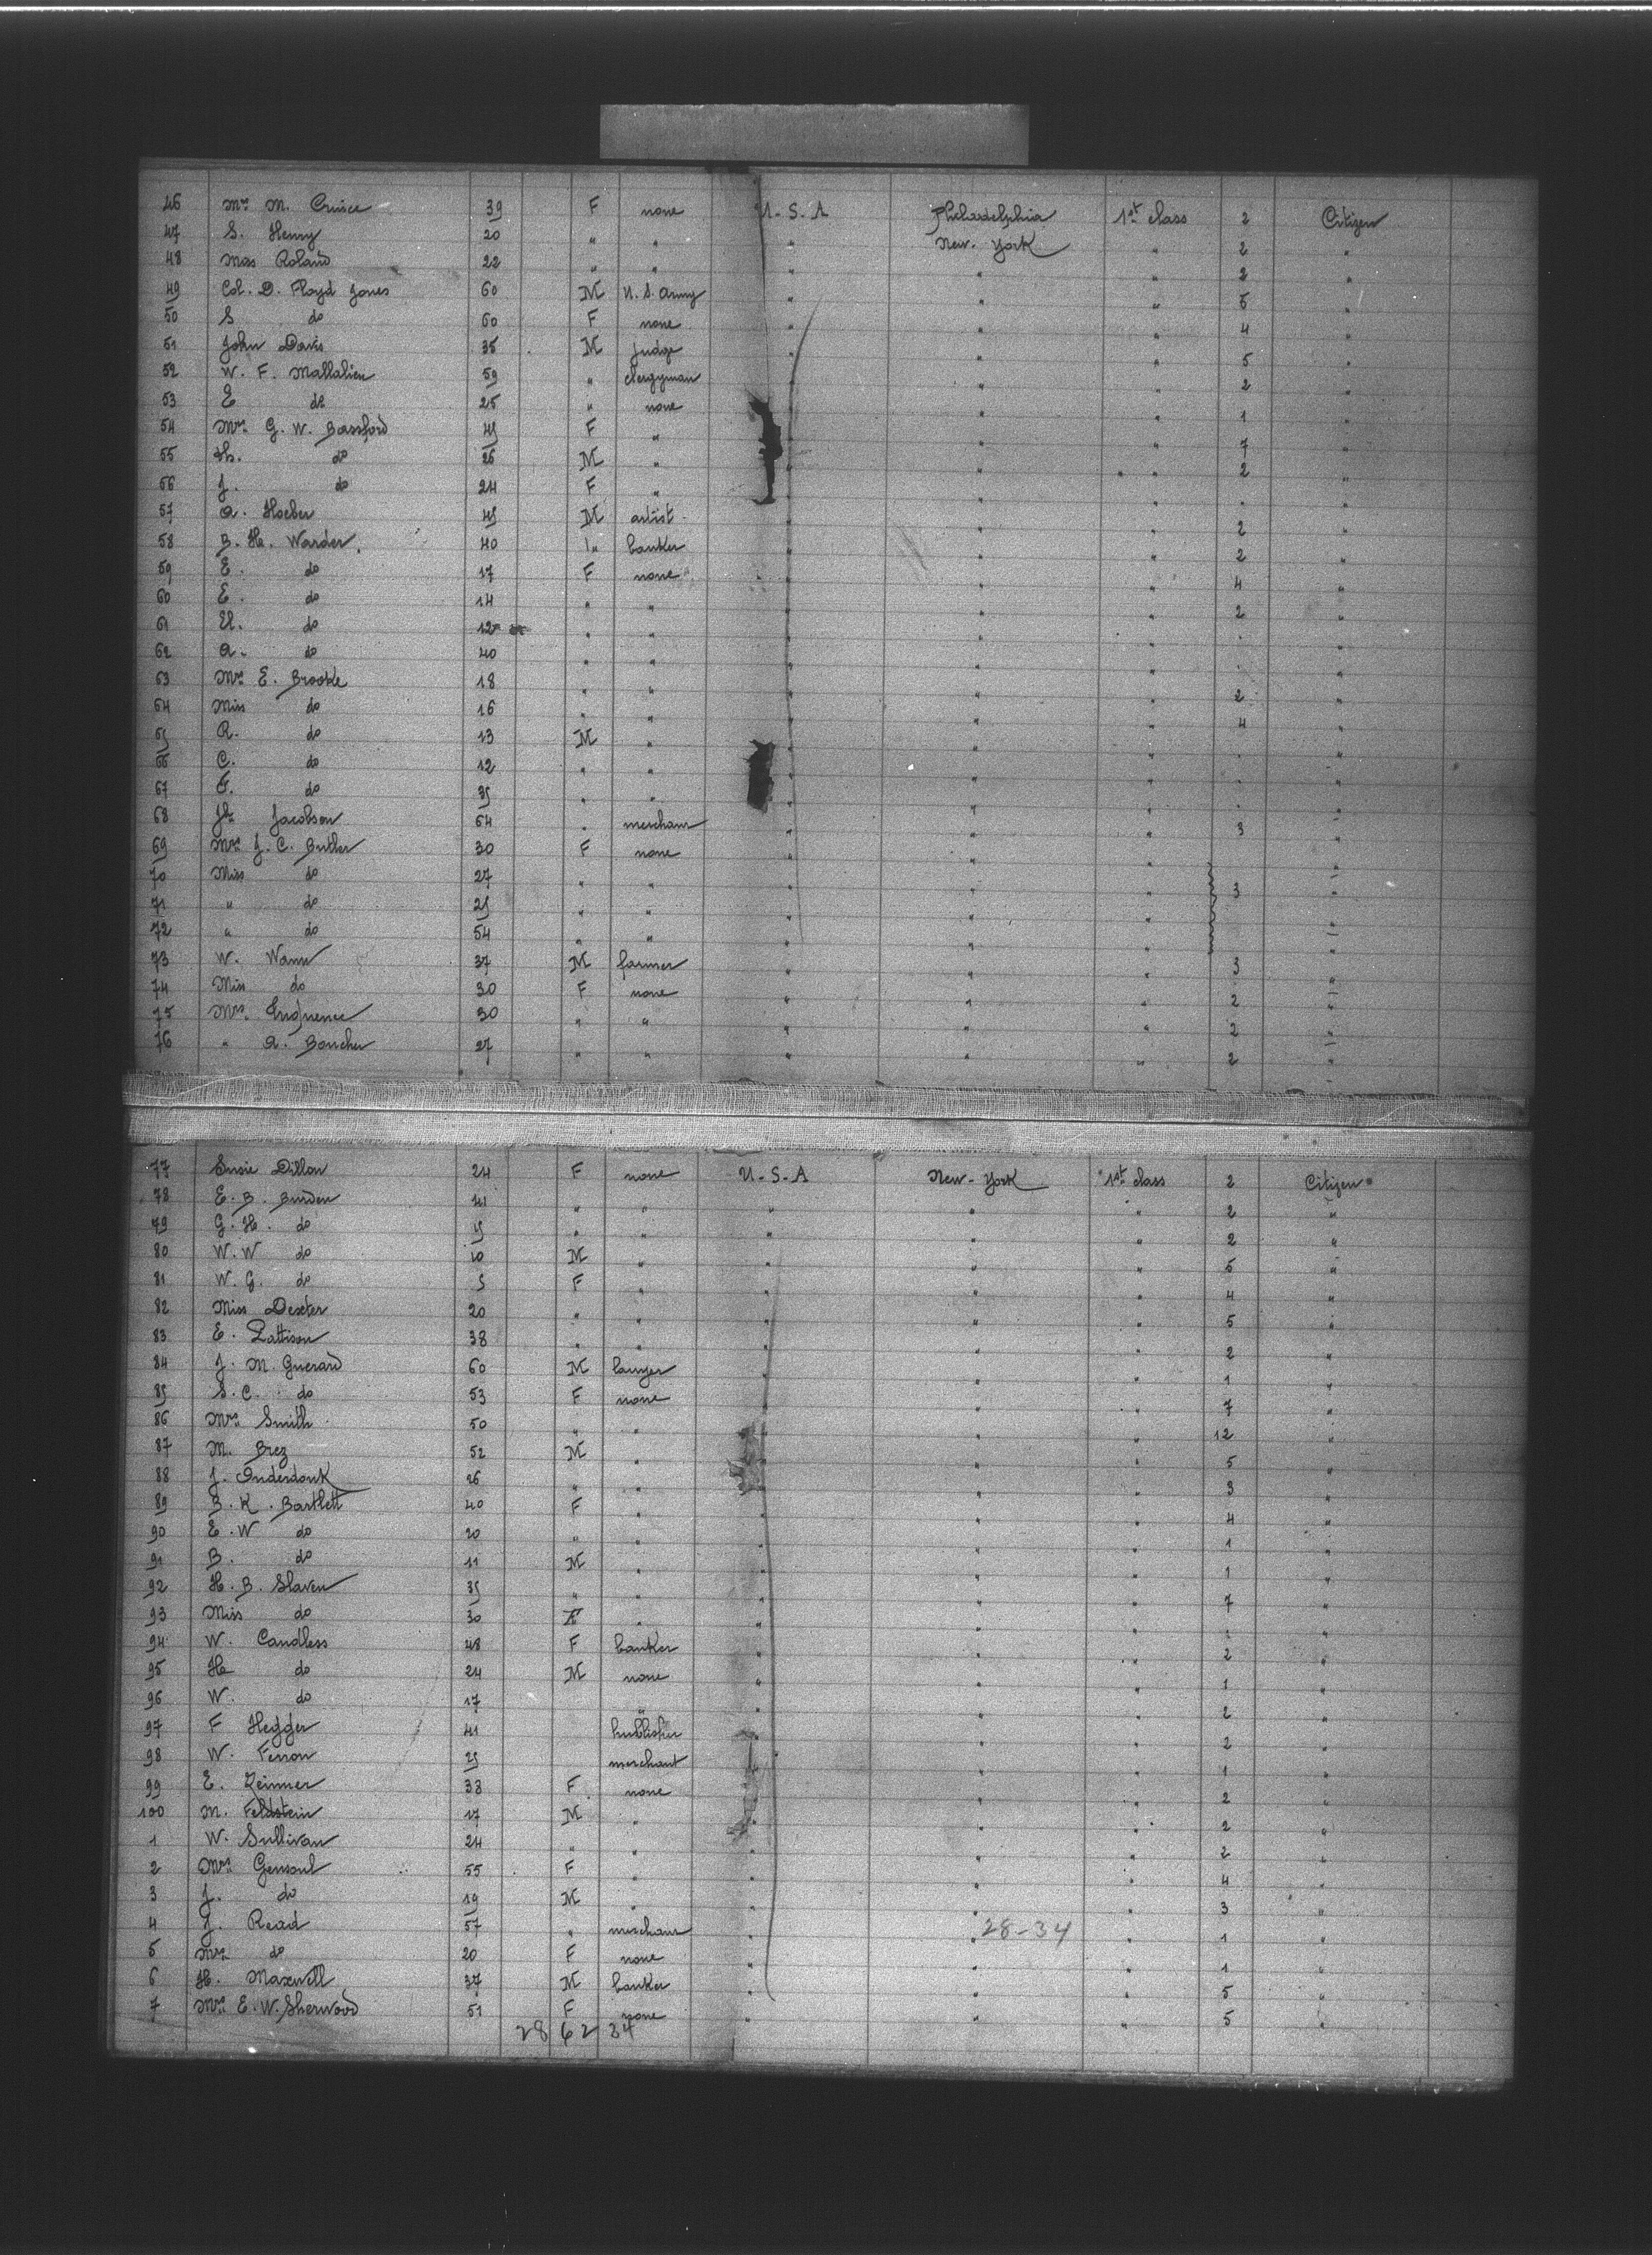 46 Mrs M. Cruice 39 F none U.S.A Philadelphia 1st class 2 Citizen
47 S. Henry 20 " " " New-York " 2 "
48 Mas Roland 22 " " " " " 2 "
49 Col. D. Floyd Jones 60 M U.S. Army " " " 5 "
50 S do 60 F none " " " 4 "
51 John Davis 35 M Judge " " " 5 "
52 W. F. Mallalieu 59 " clergyman " " " 2 "
53 E do 25 " none " " " 1 "
54 Mrs G. W. Bassford 45 F " " " 7 "
55 Th. do 26 M " " " " 2
56 J. do 24 F " " " " . "
57 A. Hoeber 45 M artist " " " 2 "
58 B. H. Warder 40 " banker " " " 2
59 E. do 17 F none " " " 4 "
60 E. do 14 " " " " " 2 "
61 El. do 12 " " " " " . "
62 A. do 40 " " " " " . "
63 Mrs E. Brooke 18 " " " " " 2 "
64 Miss do 16 " " " " " 4 "
65 R. do 13 M " " " " . "
66 C. do 12 " " " " . "
67 F. do 35 " " " " " . "
68 Jh Jacobson 64 " merchant " " " 3 "
69 Mrs J. C. Butler 30 F none " " " "
70 Miss do 27 " " " " " 3 "
71 " do 25 " " " " " "
72 " do 54 " " " " " "
73 W. Wann 37 M farmer " " " 3 "
74 Miss do 30 F none " " " 2 "
75 Mrs 30 " " " " " 2 "
76 " A. Boucher 27 " " " " " 2 "
77 Susie Dillon 24 F none U-S-A New-York 1st class 2 Citizen
78 E. B. Burden 41 " " " " " 2 "
79 G. H. do 15 " " " " " 2 "
80 W. W do 10 M " " " " 5 "
81 W. G. do 5 F " " " " 4 "
82 Miss Dexter 20 " " " " " 5 "
83 E. Pattison 38 " " " " " 2 "
84 J. M. Guerard 60 M lawyer " " " 1 "
85 S. C. do 53 F none " " " 7 "
86 Mrs Smith 50 " " " " 12 "
87 M. Brez 52 M " " " 5 "
88 J. Onderdonk 26 " " " " " 3 "
89 B. K. Bartlett 40 F " " " " 4 "
90 E. W do 20 " " " " " 1 "
91 B. do 11 M " " " " 1 "
92 H. B. Slaven 35 " " " " " 7 "
93 Miss do 30 F " " " " 1 "
94 W. Candless 48 F banker " " " 2 "
95 H do 24 M none " " " 1 "
96 W. do 17 " " " " 2 "
97 F Hegger 41 publisher " " " 2 "
98 W. Ferron 25 merchant " " " 1 "
99 E. Zeimer 38 F none " " " 2 "
100 M. Feldstein 17 M " " " " 2 "
1 W. Sullivan 24 " " " " " 2 "
2 Mrs Gensoul 55 F " " " " 4 "
3 J. do 19 M " " " " 3 "
4 J. Read 57 " merchant " " 28-34 " 1 "
5 Mrs do 20 F none " " " 1 "
6 H. Maxwell 37 M banker " " " 5 "
7 Mrs E. W. Sherwood 51 F none " " " 5 "
28 62 34